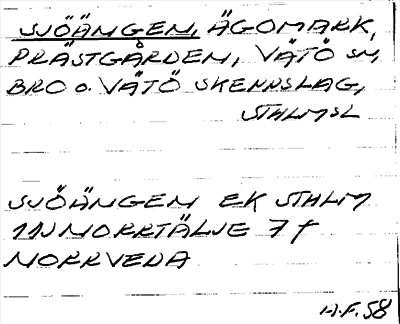 SJÖÄNGEN, ÄGOMARK,
PRÄSTGÅRDEN, VÄTÖ SN,
BRO o. VÄTÖ SKEPPSLAG,
STHLMSL
SJÖÄNGEN EK STHLM
11J NORRTÄLJE 7 f
NORRVEDA
H.F. 58